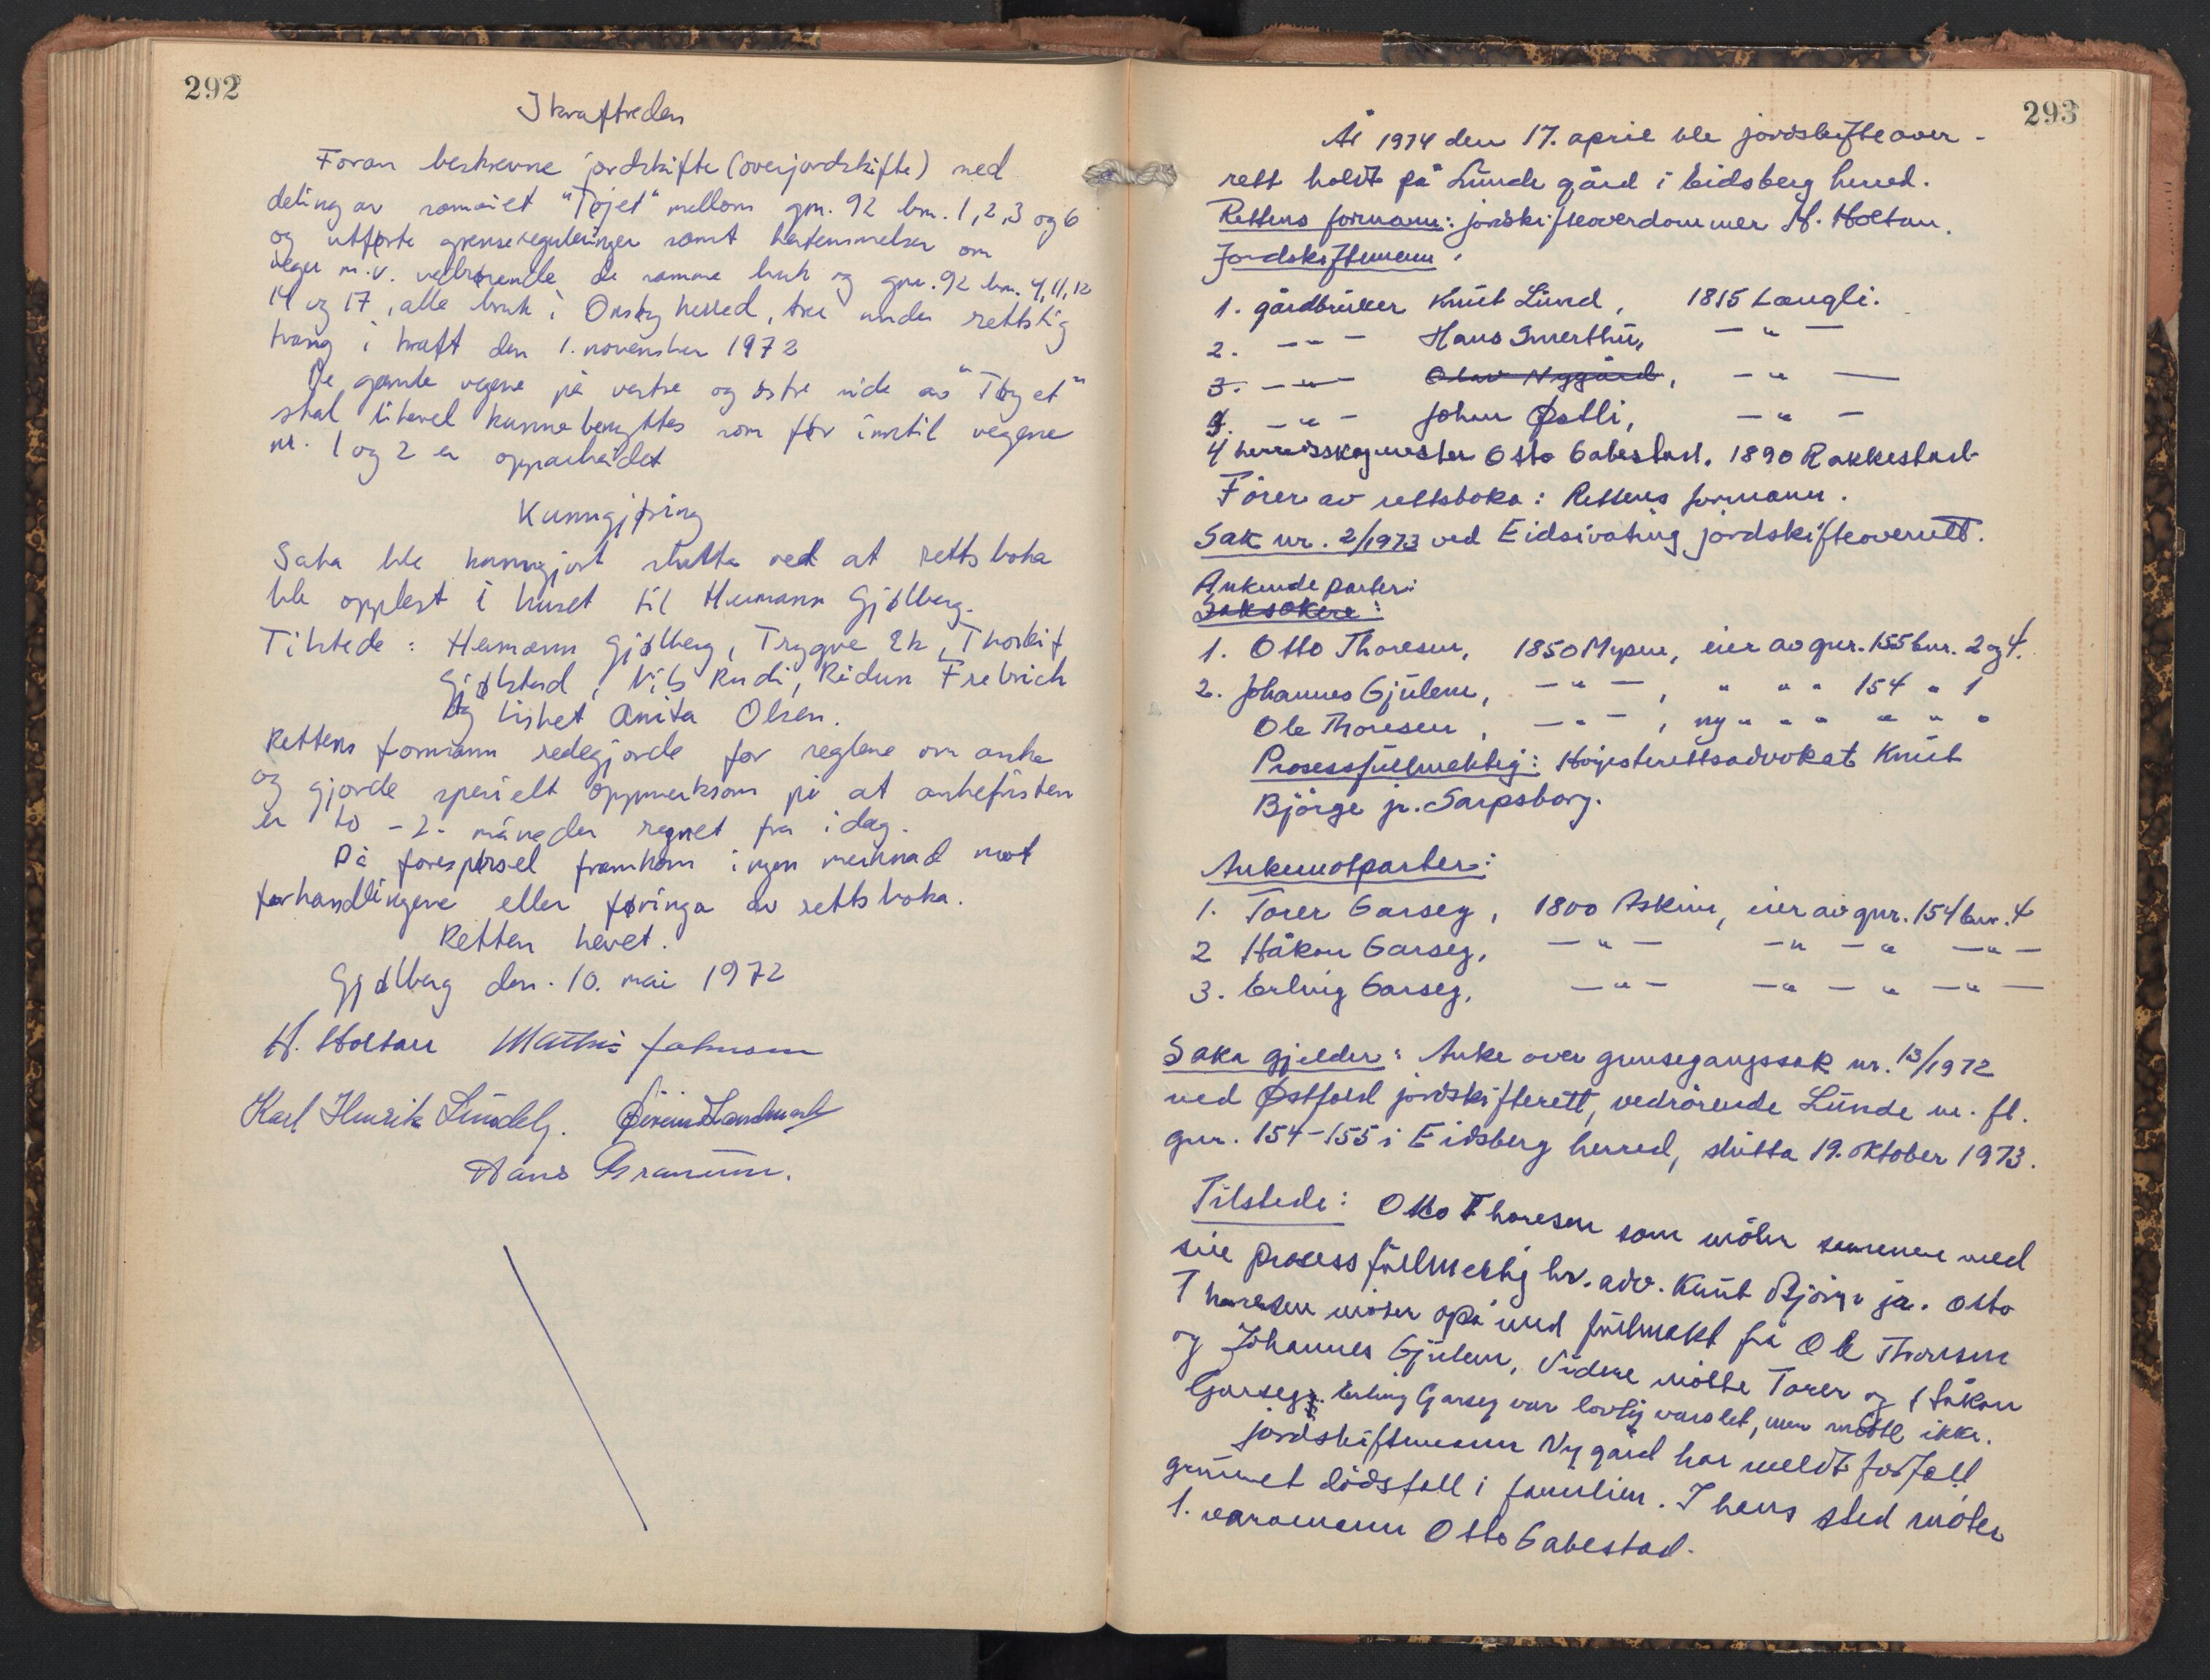 292
Ikraftreden
Foran beskrevne jordskifte (overjordskifte) med
deling av sameiet "Tøjet" mellom gnr. 92 bnr. 1, 2, 3 og 6
og utførte grensereguleringer samt bestemmelser om
veger m.v. vedrørende de samme bruk og gnr. 92 bnr. 4, 11, 12
14 og 17, alle bruk i Onsøy herred, trer under rettslig
tvang i kraft den 1. november 1972
De gamle vegene på vestre og østre side av "Tøyet"
skal likevel kunne benyttes som før inntil vegene
nr. 1 og 2 er opparbeidet
Kunngjøring
Saka ble kunngjort slutta ved at rettsboka
ble opplest i huset til Hermann Gjølberg.
Tilstede: Hermann Gjølberg, Trygve Ek, Thorleif
Gjølstad, Nils Rudi, Reidun Frebrich
og Lisbet Anita Olsen.
Rettens formann redegjorde for reglene om anke
og gjorde spesielt oppmerksom på at ankefristen
er to -2- måneder regnet fra i dag.
På forespørsel framkom ingen merknad mot
forhandlingene eller føringa av rettsboka.
Retten hevet.
Gjølberg den. 10. mai 1972
H. Holtan Mathis Johnsen
Karl Henrik Lundeby. Øivind Landmark
Hans Granum.
293
År 1974 den 17. april ble jordskifteover-
rett holdt på Lunde gård i Eidsberg herred.
Rettens formann: jordskifteoverdommer H. Holtan.
Jordskiftemenn:
1. gårdbruker Knut Lund, 1815 Langli.
2. -"- Hans Smerthu, -"-
3. -"- Olav Nygård, -"-
3. -"- Johan Østli, -"-
4 herredsskogmester Otto Gabestad, 1890 Rakkestad
Fører av rettsboka: Rettens formann.
Sak nr. 2/1973 ved Eidsivating jordskifteoverrett.
Ankende parter:
Saksøkere:
1. Otto Thoresen, 1850 Mysen, eier av gnr. 155 bnr. 2 og 4.
2. Johannes Gjulem, -"-, " " " 154 " 1
Ole Thoresen, -"-, ny " " " " " "
Prosessfullmektig: Høyesterettsadvokat Knut
Bjørge jr. Sarpsborg.
Ankemotparter:
1. Torer Garseg, 1800 Askim, eier av gnr. 154 bnr. 4
2 Håkon Garseg, -"- -"-"- -"-
3. Erling Garseg, -"- -"-"- -"-
Saka gjelder: Anke over grensegangssak nr. 13/1972
ved Østfold jordskifterett, vedrørende Lunde m. fl.
gnr. 154-155 i Eidsberg herred, slutta 19. oktober 1973.
Tilstede: Otto Thoresen som møter sammen med
sin prosessfullmektig hr. adv. Knut Bjørge jr. Otto
Thoresen møter også med fullmakt fra Ole Thoresen
og Johannes Gjulem. Videre møtte Torer og Håkon
Garseg. Erling Garseg var lovlig varslet, men møtte ikke.
Jordskiftemann Nygård har meldt forfall
grunnet dødsfall i familien. I hans sted møter
1. varamann Otto Gabestad.